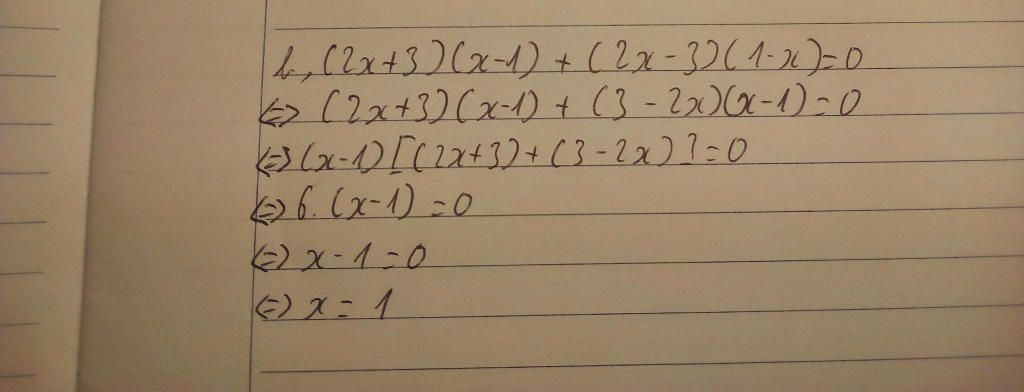 b, (2x+3)(x-1) + (2x-3)(1-x)=0
<=> (2x+3)(x-1) + (3-2x)(x-1)=0
<=> (x-1)[(2x+3)+(3-2x)]=0
<=> 6.(x-1)=0
<=> x-1=0
<=> x=1